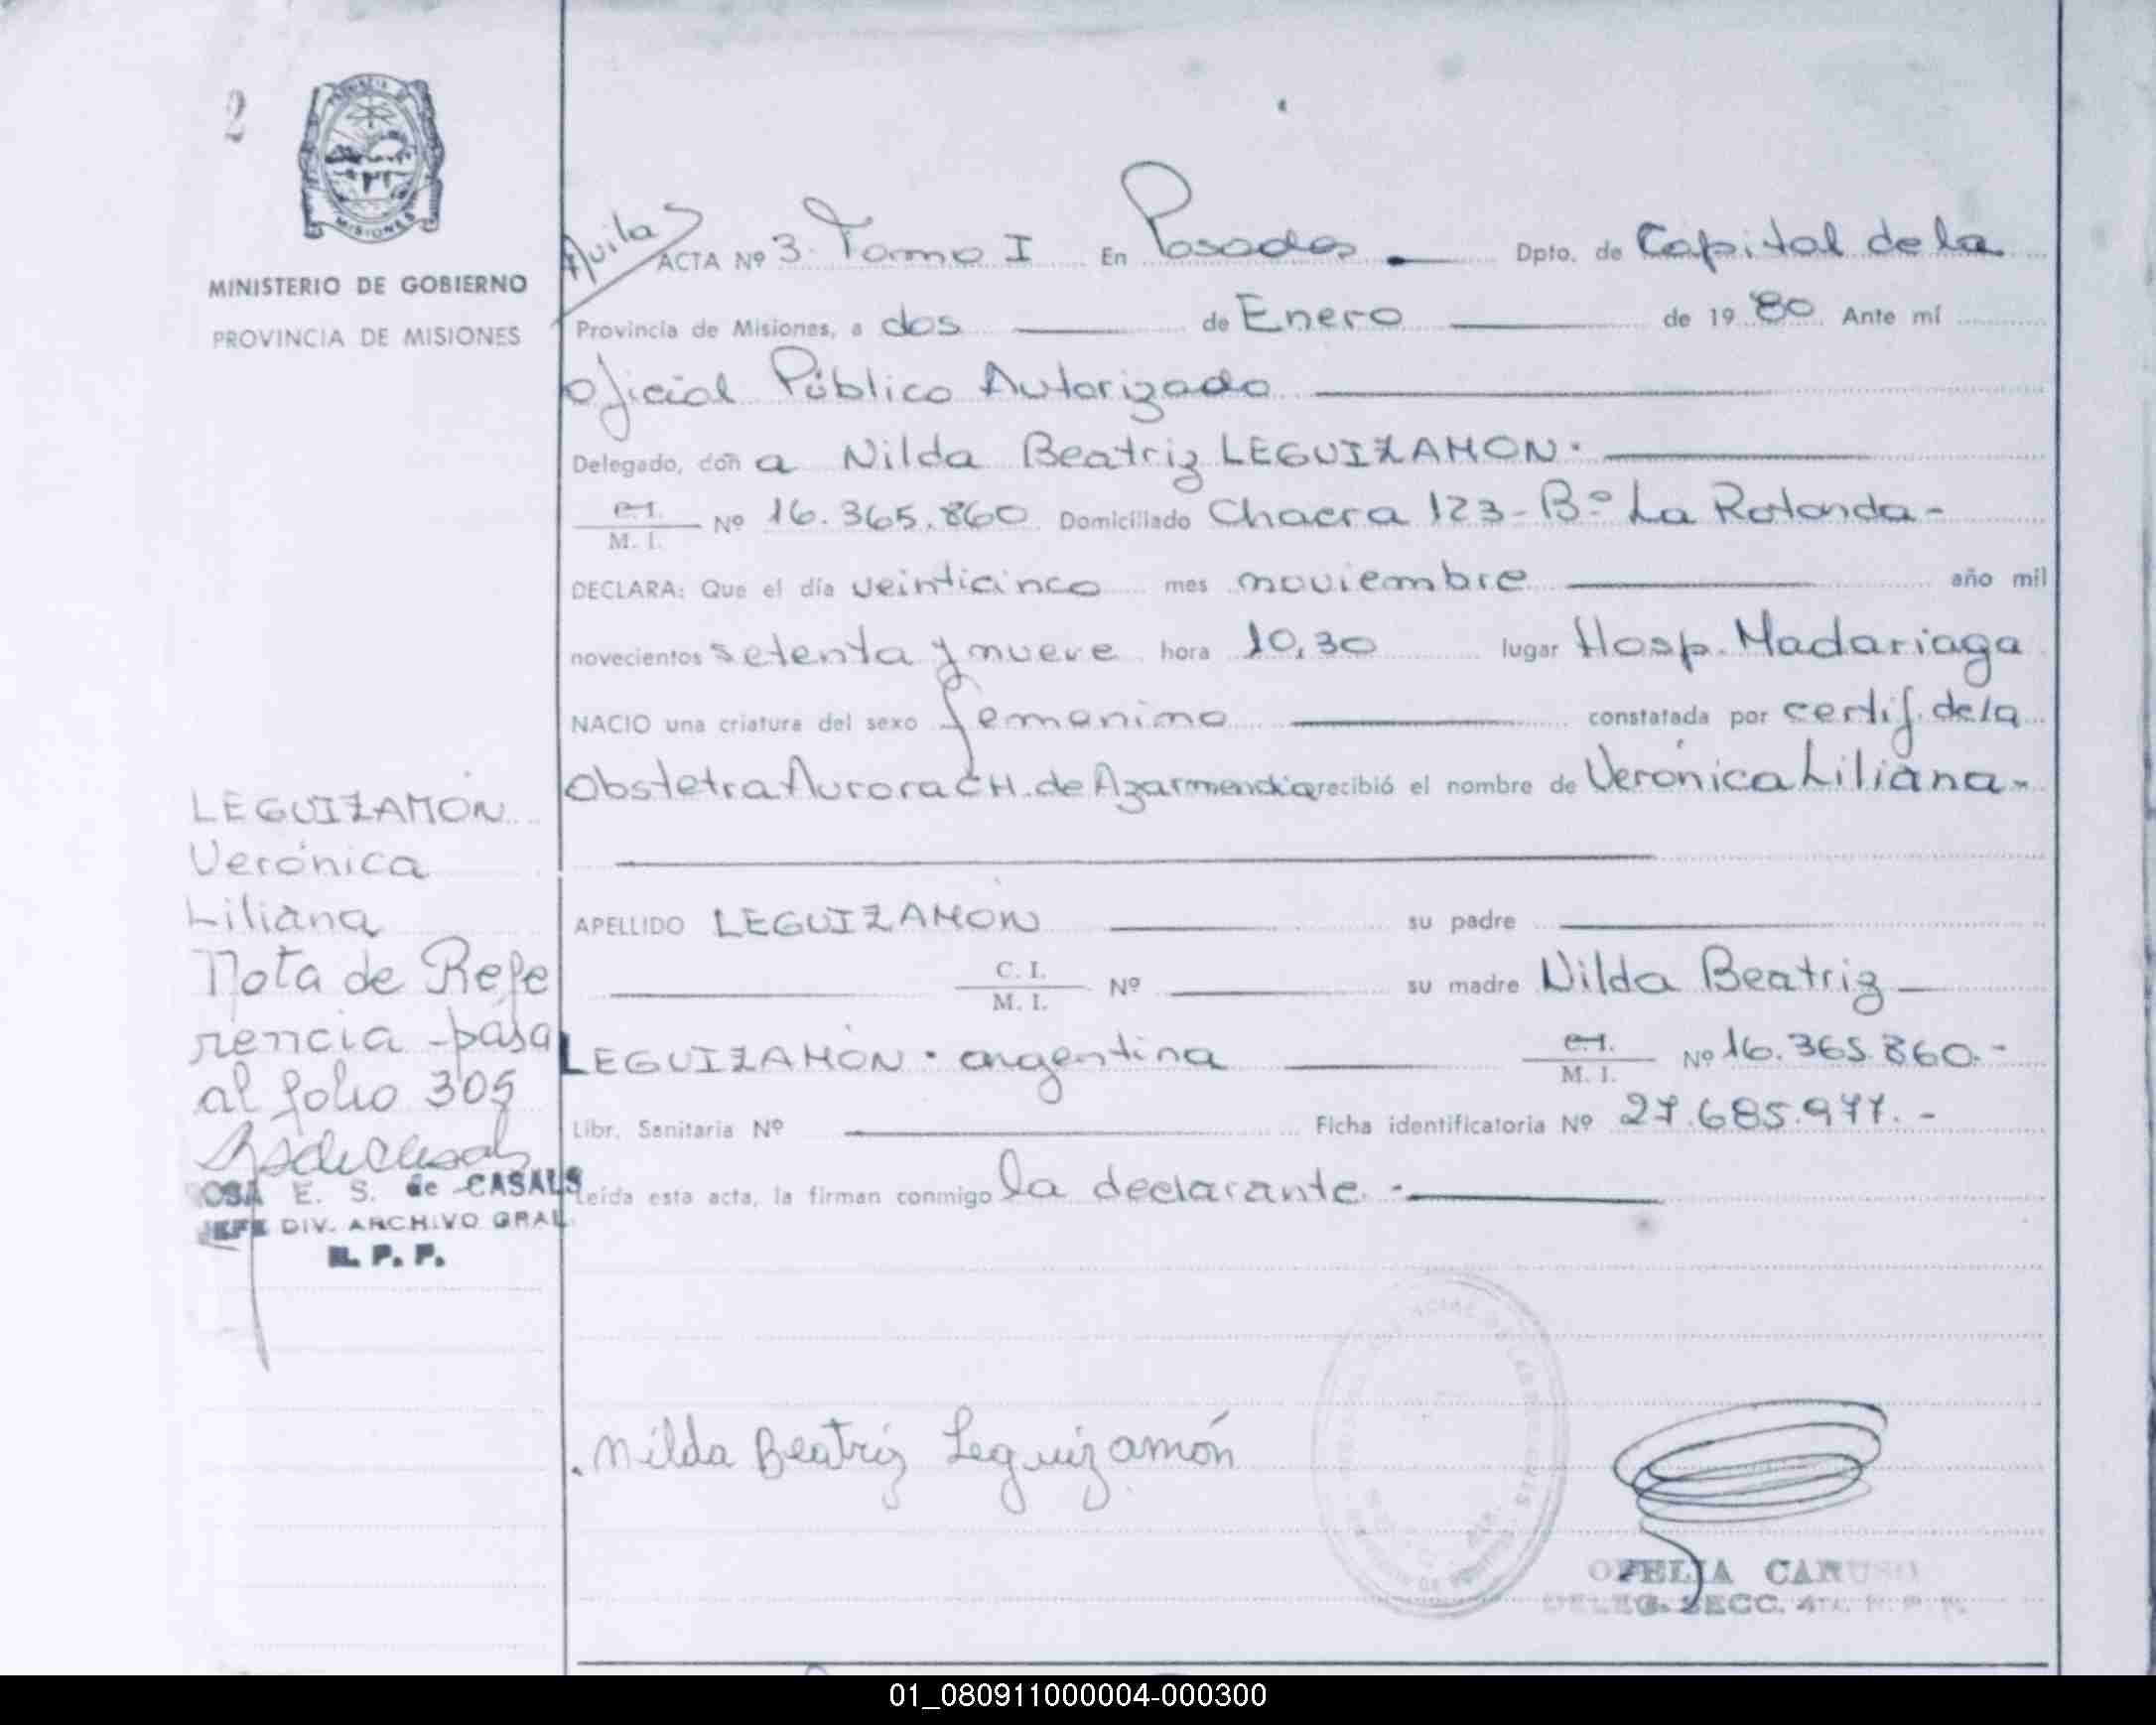 2
PROVINCIA DE
MISIONES
MINISTERIO DE GOBIERNO
PROVINCIA DE MISIONES
Avila
ACTA Nº 3. Tomo I En Posadas Dpto. de Capital de la
Provincia de Misiones, a dos de Enero de 19 80 Ante mí
Oficial Público Autorizado
Delegado, don a Nilda Beatriz LEGUIZAMON.
C.I. / M. I. Nº 16.365.860 Domiciliado Chacra 123 - Bº La Rotonda -
DECLARA: Que el día veinticinco mes noviembre año mil
novecientos setenta y nueve hora 10,30 lugar Hosp. Madariaga
NACIO una criatura del sexo femenino constatada por certif. de la
Obstetra Aurora CH. de Azarmendia recibió el nombre de Verónica Liliana -
APELLIDO LEGUIZAMON su padre
C. I. / M. I. Nº su madre Nilda Beatriz
LEGUIZAMÓN. argentina C.I. / M. I. Nº 16.365.860.-
Libr. Sanitaria Nº Ficha identificatoria Nº 27.685.977.-
Leída esta acta, la firman conmigo la declarante.-
LEGUIZAMÓN
Verónica
Liliana
Nota de Refe
rencia - pasa
al folio 305
OSA E. S. de CASALS
JEFE DIV. ARCHIVO GRAL
R. P. P.
Nilda Beatriz Leguizamón
OFELIA CARUSO
DELEG. SECC. 4ta. R. P. P.
01_080911000004-000300